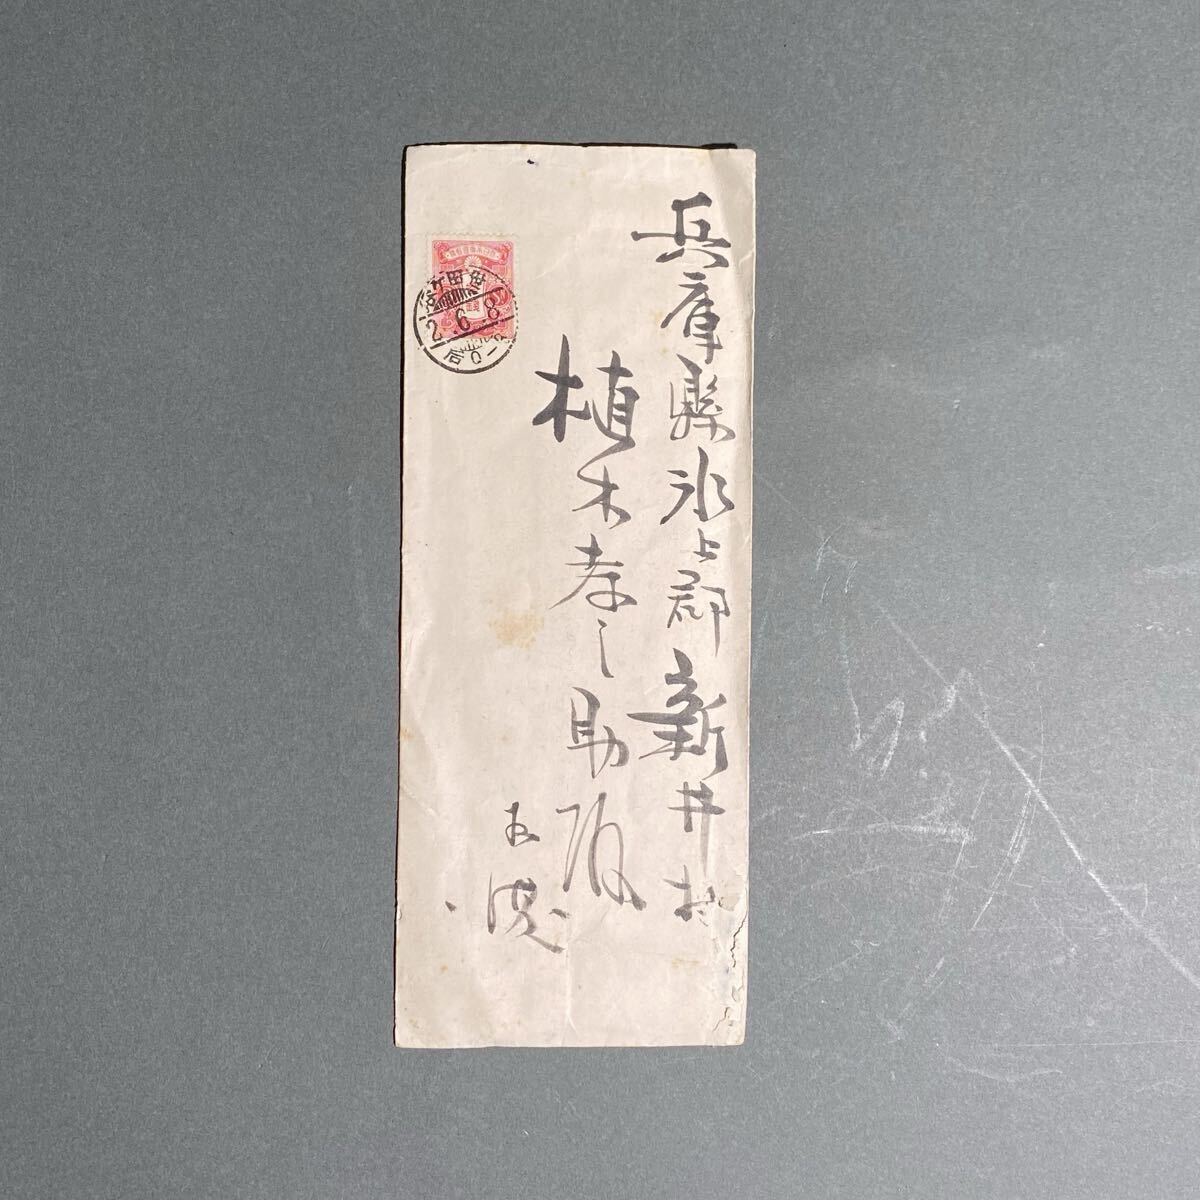 兵庫縣氷上郡新井村
植木孝之助殿
2.6.8
后0-